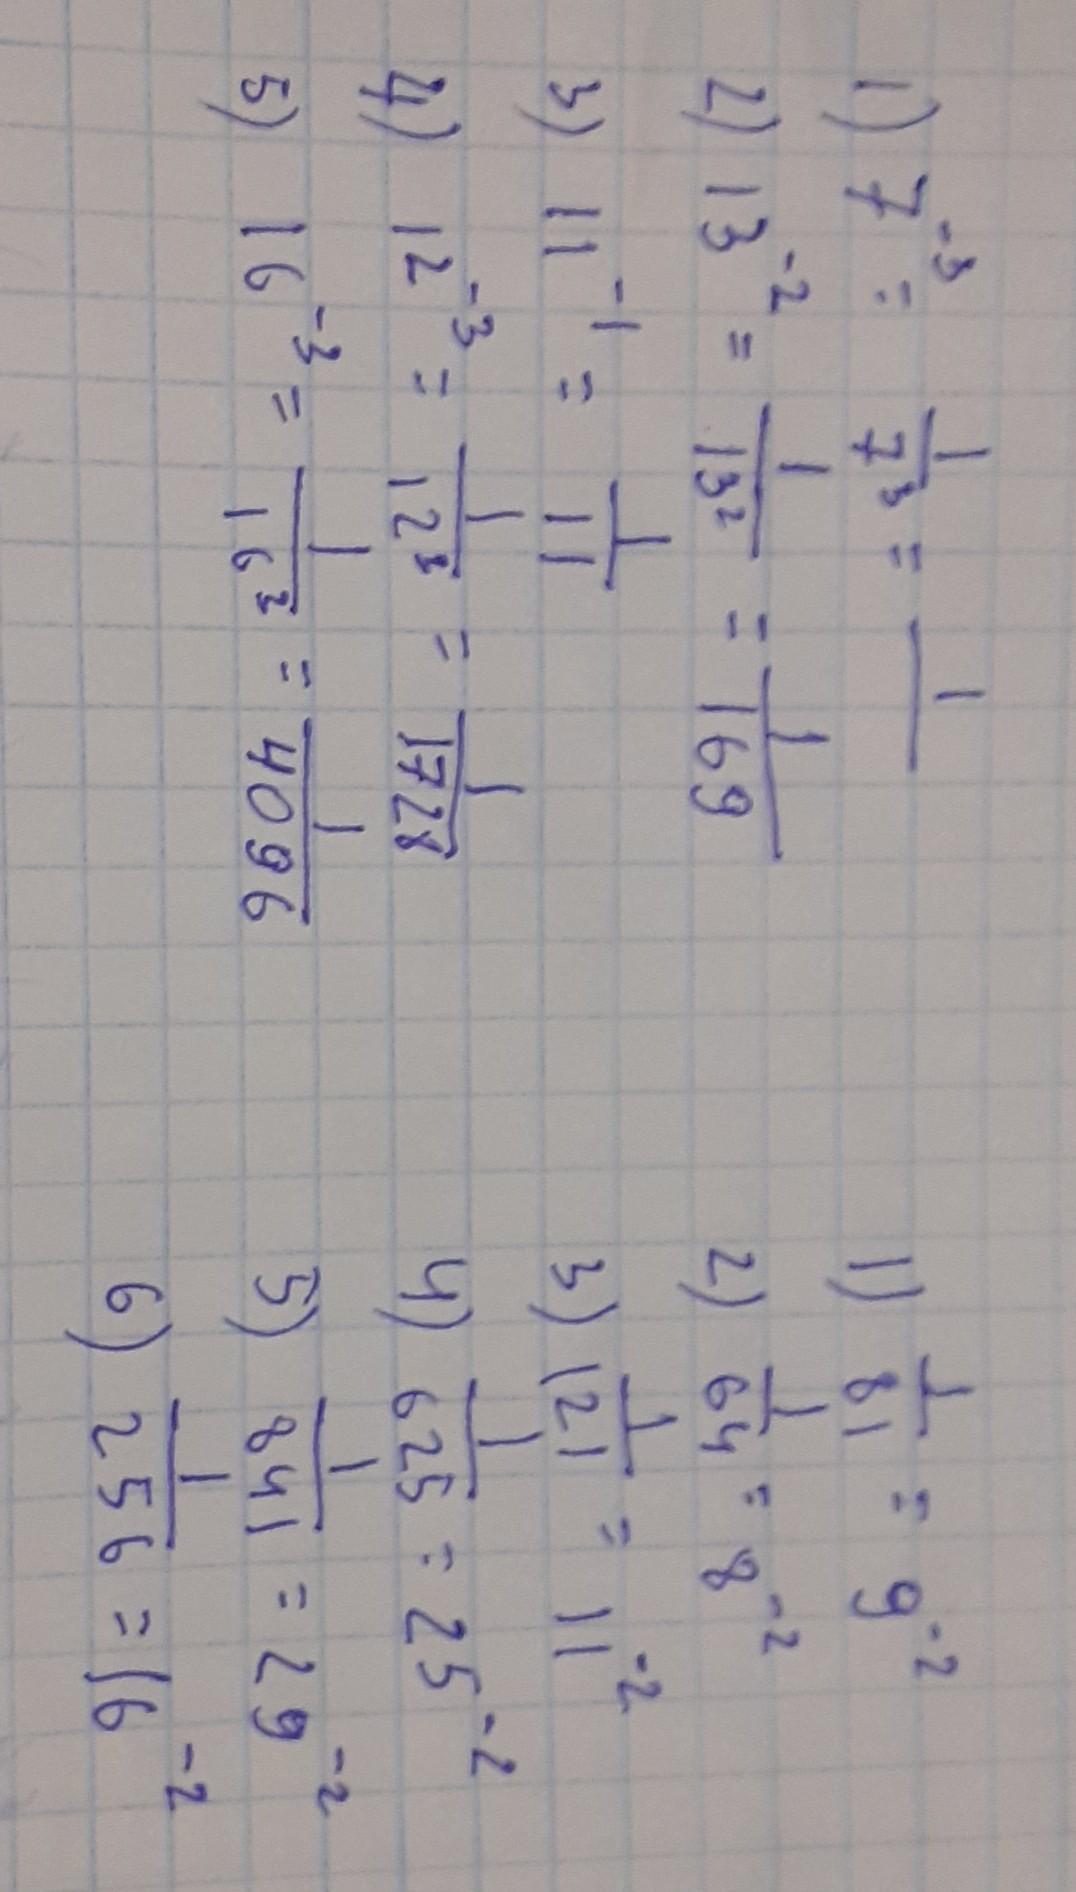 1) 7⁻³ = 1/7³ = 1/
2) 13⁻² = 1/13² = 1/169
3) 11⁻¹ = 1/11
4) 12⁻³ = 1/12³ = 1/1728
5) 16⁻³ = 1/16³ = 1/4096
1) 1/81 = 9⁻²
2) 1/64 = 8⁻²
3) 1/121 = 11⁻²
4) 1/625 = 25⁻²
5) 1/841 = 29⁻²
6) 1/256 = 16⁻²